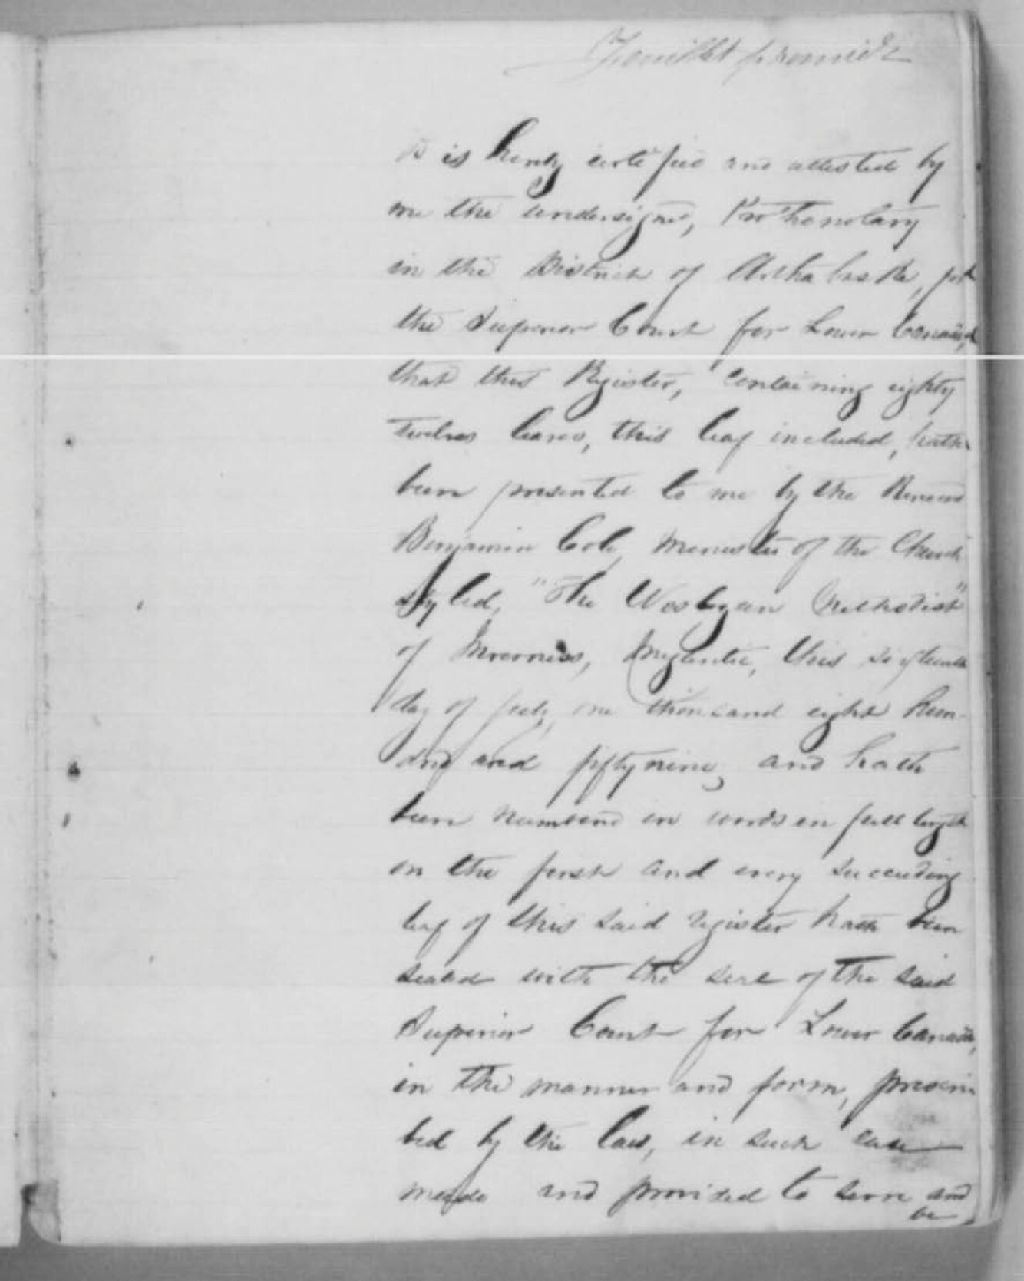 Feuillet premier
It is hereby certified and attested by
me the undersigned, Prothonotary
in the District of Arthabaska, for
the Superior Court for Lower Canada,
that this Register, containing eighty
twelve leaves, this leaf included, hath
been presented to me by the Reverend
Benjamin Cole, Minister of the Church
styled, "The Wesleyan Methodist"
of Inverness, Megantic, this sixteenth
day of July, one thousand eight hun-
dred and fifty nine, and hath
been numbered in words en full length
on the first and every succeeding
leaf of this said register hath been
sealed with the seal of the said
Superior Court for Lower Canada,
in the manner and form, prescri
bed by the law, in such case
made and provided to serve and
be